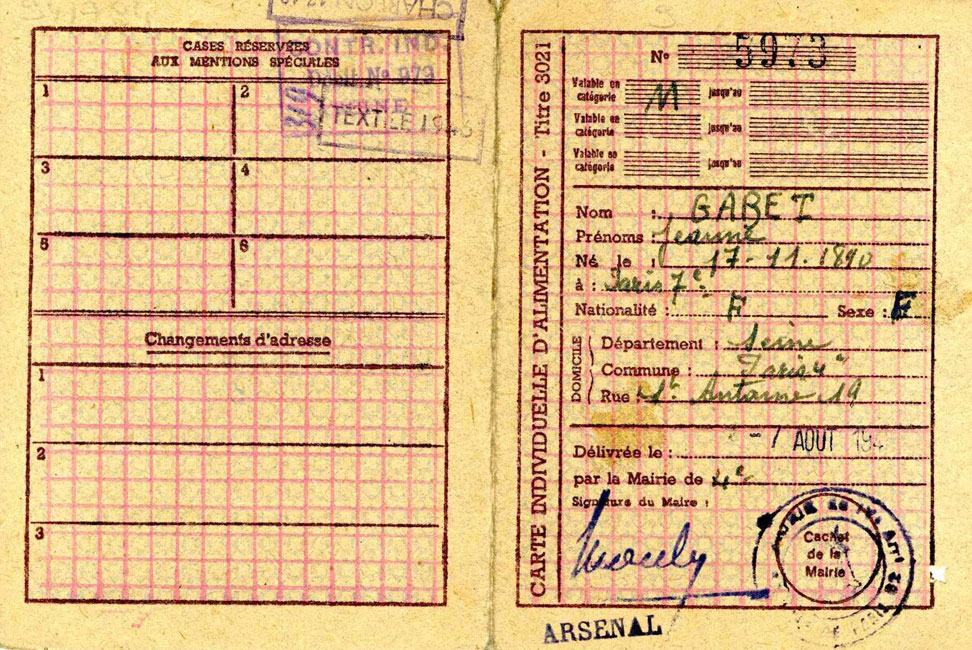 CASES RÉSERVÉES
AUX MENTIONS SPÉCIALES
CONTR. IND.
No 973
TEXTILE 194
1
2
3
4
5
6
Changements d'adresse
1
2
3
CARTE INDIVIDUELLE D'ALIMENTATION - Titre 3021
No 5973
Valable en catégorie M jusqu'au
Valable en catégorie jusqu'au
Valable en catégorie jusqu'au
Nom : GABET
Prénoms : Jeanne
Né le : 17-11.1890
à : Paris 7e
Nationalité : F Sexe : F
DOMICILE
Département : Seine
Commune : Paris 4e
Rue St Antoine 19
Délivrée le : -7 AOUT 194
par la Mairie de 4e
Signature du Maire :
Cachet
de la
Mairie
ARSENAL